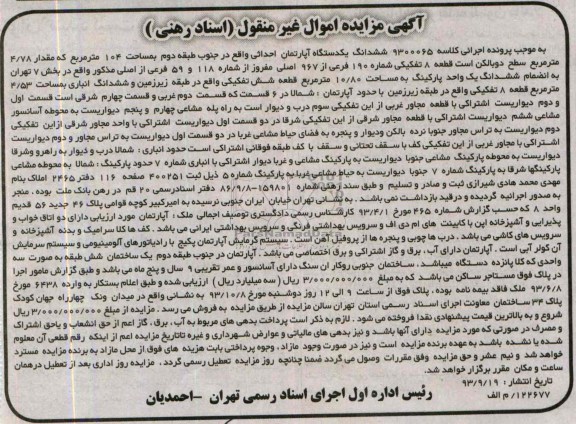 آگهی مزایده اموال غیر منقول (اسناد رهنی)
به موجب پرونده اجرائی کلاسه ۹۳۰۰۰۶۵ ششدانگ یکدستگاه آپارتمان احداثی واقع در جنوب طبقه دوم بمساحت ۱۰۴ مترمربع که مقدار ۴/۷۸
مترمربع سطح دوبالکن است قطعه ۸ تفکیکی شماره ۱۹۰ فرعی از ۹۶۷ اصلی مفروز از شماره ۱۱۸ و ۵۹ فرعی از اصلی مذکور واقع در بخش ۷ تهران
به انضمام ششدانگ یک واحد پارکینگ به مساحت ۱۰/۸۰ مترمربع قطعه شش تفکیکی واقع در طبقه زیرزمین و ششدانگ انباری بمساحت ۴/۵۳
مترمربع قطعه ۸ تفکیکی واقع در طبقه زیرزمین با حدود آپارتمان : شمالا در ۶ قسمت که قسمت دوم غربی و قسمت چهارم شرقی است قسمت اول
و دوم دیواریست اشتراکی با قطعه مجاور غربی از این تفکیکی سوم درب و دیوار است به راه پله مشاعی چهارم و پنجم دیواریست به محوطه آسانسور
مشاعی ششم دیواریست اشتراکی با قطعه مجاور شرقی از این تفکیکی شرقا در دو قسمت اول دیواریست اشتراکی با واحد مجاور شرقی از این تفکیکی
دوم دیواریست به تراس مجاور جنوبا نرده بالکن و دیوار و پنجره به فضای حیاط مشاعی غربا در دو قسمت اول دیواریست به تراس مجاور و دوم دیواریست
اشتراکی با مجاور غربی از این تفکیکی کف با سقف تحتانی و سقف با کف طبقه فوقانی اشتراکی است حدود انباری : شمالا درب و دیوار به راهرو وشرقا
دیواریست به محوطه پارکینگ مشاعی جنوبا دیواریست به پارکینگ مشاعی و غربا دیوار اشتراکی با انباری شماره ۷ حدود پارکینگ : شمالا به محوطه مشاعی
پارکینگها شرقا به پارکینگ شماره ۷ جنوبا دیواریست به حیاط مشاعی غربا به پارکینگ شماره ۵ ذیل ثبت ۴۰۰۲۵۱ صفحه ۱۱۶ دفتر ۲۴۶۵ املاک بنام
مهدی محمد هادی شیرازی ثبت و صادر و تسلیم و طبق سند رهنی شماره ۱۵۹۸۰۱-۸۶/۹/۸ دفتر اسنادرسمی ۲۰ قم در رهن بانک ملت بوده، منجر
به صدور اجرائیه گردیده و درقید بازداشت نمی باشد. به نشانی تهران خیابان ایران جنوبی نرسیده به امیرکبیر کوچه قوامی پلاک ۴۶ جدید ۵۶ قدیم
واحد ۸ که حسب گزارش شماره ۴۶۵ مورخ ۹۳/۴/۱ کارشناس رسمی دادگستری توصیف اجمالی ملک : آپارتمان مورد ارزیابی دارای دو اتاق خواب و
پذیرایی و آشپزخانه اپن با کابینت های ام دی اف و سرویس بهداشتی فرنگی و سرویس بهداشتی ایرانی می باشد . کف ها کلا سرامیک و بدنه آشپزخانه و
سرویس های کاشی می باشد . درب ها چوبی و پنجره ها از پروفیل آهن است . سیستم گرمایش آپارتمان پکیج با رادیاتورهای آلومینیومی و سیستم سرمایش
آن کولر آبی است . آپارتمان دارای آب ، برق و گاز اشتراکی و برق اختصاصی می باشد . آپارتمان در جنوب طبقه دوم یک ساختمان شش طبقه به صورت سه
واحدی که کلا پانزده دستگاه میباشد . ساختمان جنوبی روکار ان سنگ دارای آسانسور و عمر تقریبی ۹ سال و پنج ماه می باشد و طبق گزارش مامور اجرا
در پلاک فوق مستاجر ساکن می باشد که به مبلغ ۳/۰۰۰/۰۰۰/۰۰۰ ریال (سه میلیارد ریال ) ارزیابی شده و طبق اعلام بستکار به وارده ۶۴۳۸ مورخ
۹۳/۶/۸ ملک فاقد بیمه نامه بوده . پلاک فوق از ساعت ۹ الی ۱۲ روز دوشنبه مورخ ۹۳/۱۰/۸ به نشانی واقع در میدان ونک چهارراه جهان کودک
پلاک ۳۴ ساختمان معاونت اجرای اسناد رسمی استان تهران سالن مزایده از طریق مزایده به فروش می رسد . مزایده از مبلغ ۳/۰۰۰/۰۰۰/۰۰۰ ریال
شروع و به بالاترین قیمت پیشنهادی نقدا فروخته می شود . لازم به ذکر است پرداخت بدهی های مربوط به آب ، برق ، گاز اعم از حق انشعاب و یاحق اشتراک
و مصرف در صورتی که مورد مزایده دارای آنها باشد و نیز بدهی های مالیاتی و عوارض شهرداری و غیره تاتاریخ مزایده اعم از اینکه رقم قطعی آن معلوم
شده یا نشده باشد به عهده برنده مزایده است و نیز در صورت وجود مازاد ، وجوه پرداختی بابت هزینه های فوق از محل مازاد به برنده مزایده مسترد
خواهد شد و نیم عشر و حق مزایده وفق مقررات وصول می گردد ضمنا چنانچه روز مزایده تعطیل رسمی گردد . مزایده روز اداری بعد از تعطیل درهمان
ساعت و مکان مقرر برگزار خواهد شد.
تاریخ انتشار : ۹۳/۹/۱۹
۱۲۲۶۷۷/م الف
رئیس اداره اول اجرای اسناد رسمی تهران – احمدیان